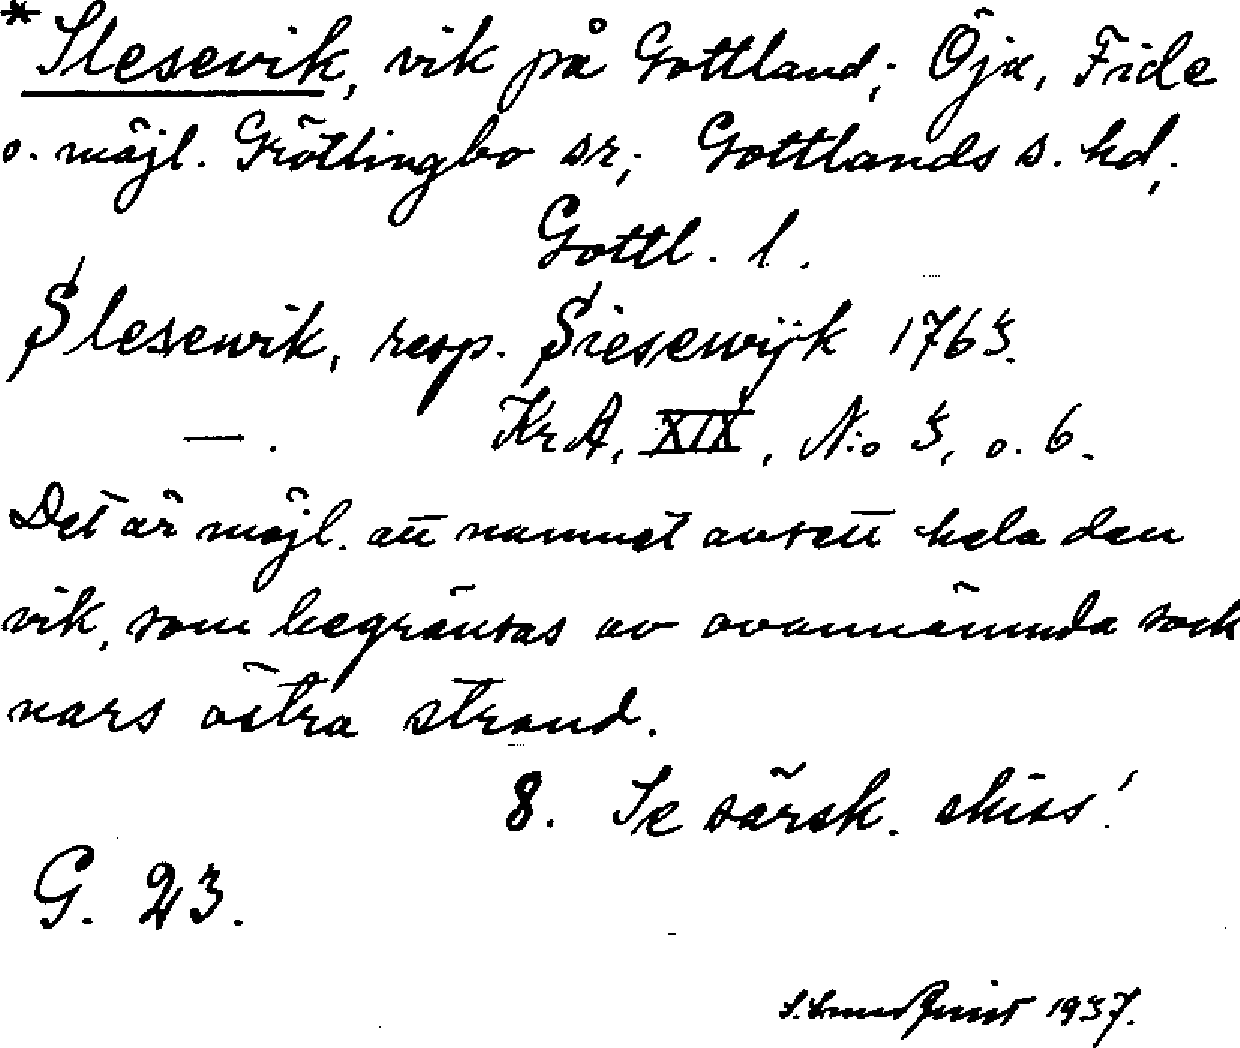 *Slesevik, vik på Gottland; Öja, Fide
o. möjl. Grötlingbo sr; Gottlands s. hd,
Gottl. l.
Slesewik, resp. Siesewijk 1763.
—. KrA, XIX, N:o 3, o. 6.
Det är möjl. att namnet avsett hela den
vik, som begränsas av ovannämnda sock
nars östra strand.
8. Se särsk. skiss!
G. 23.
1937.